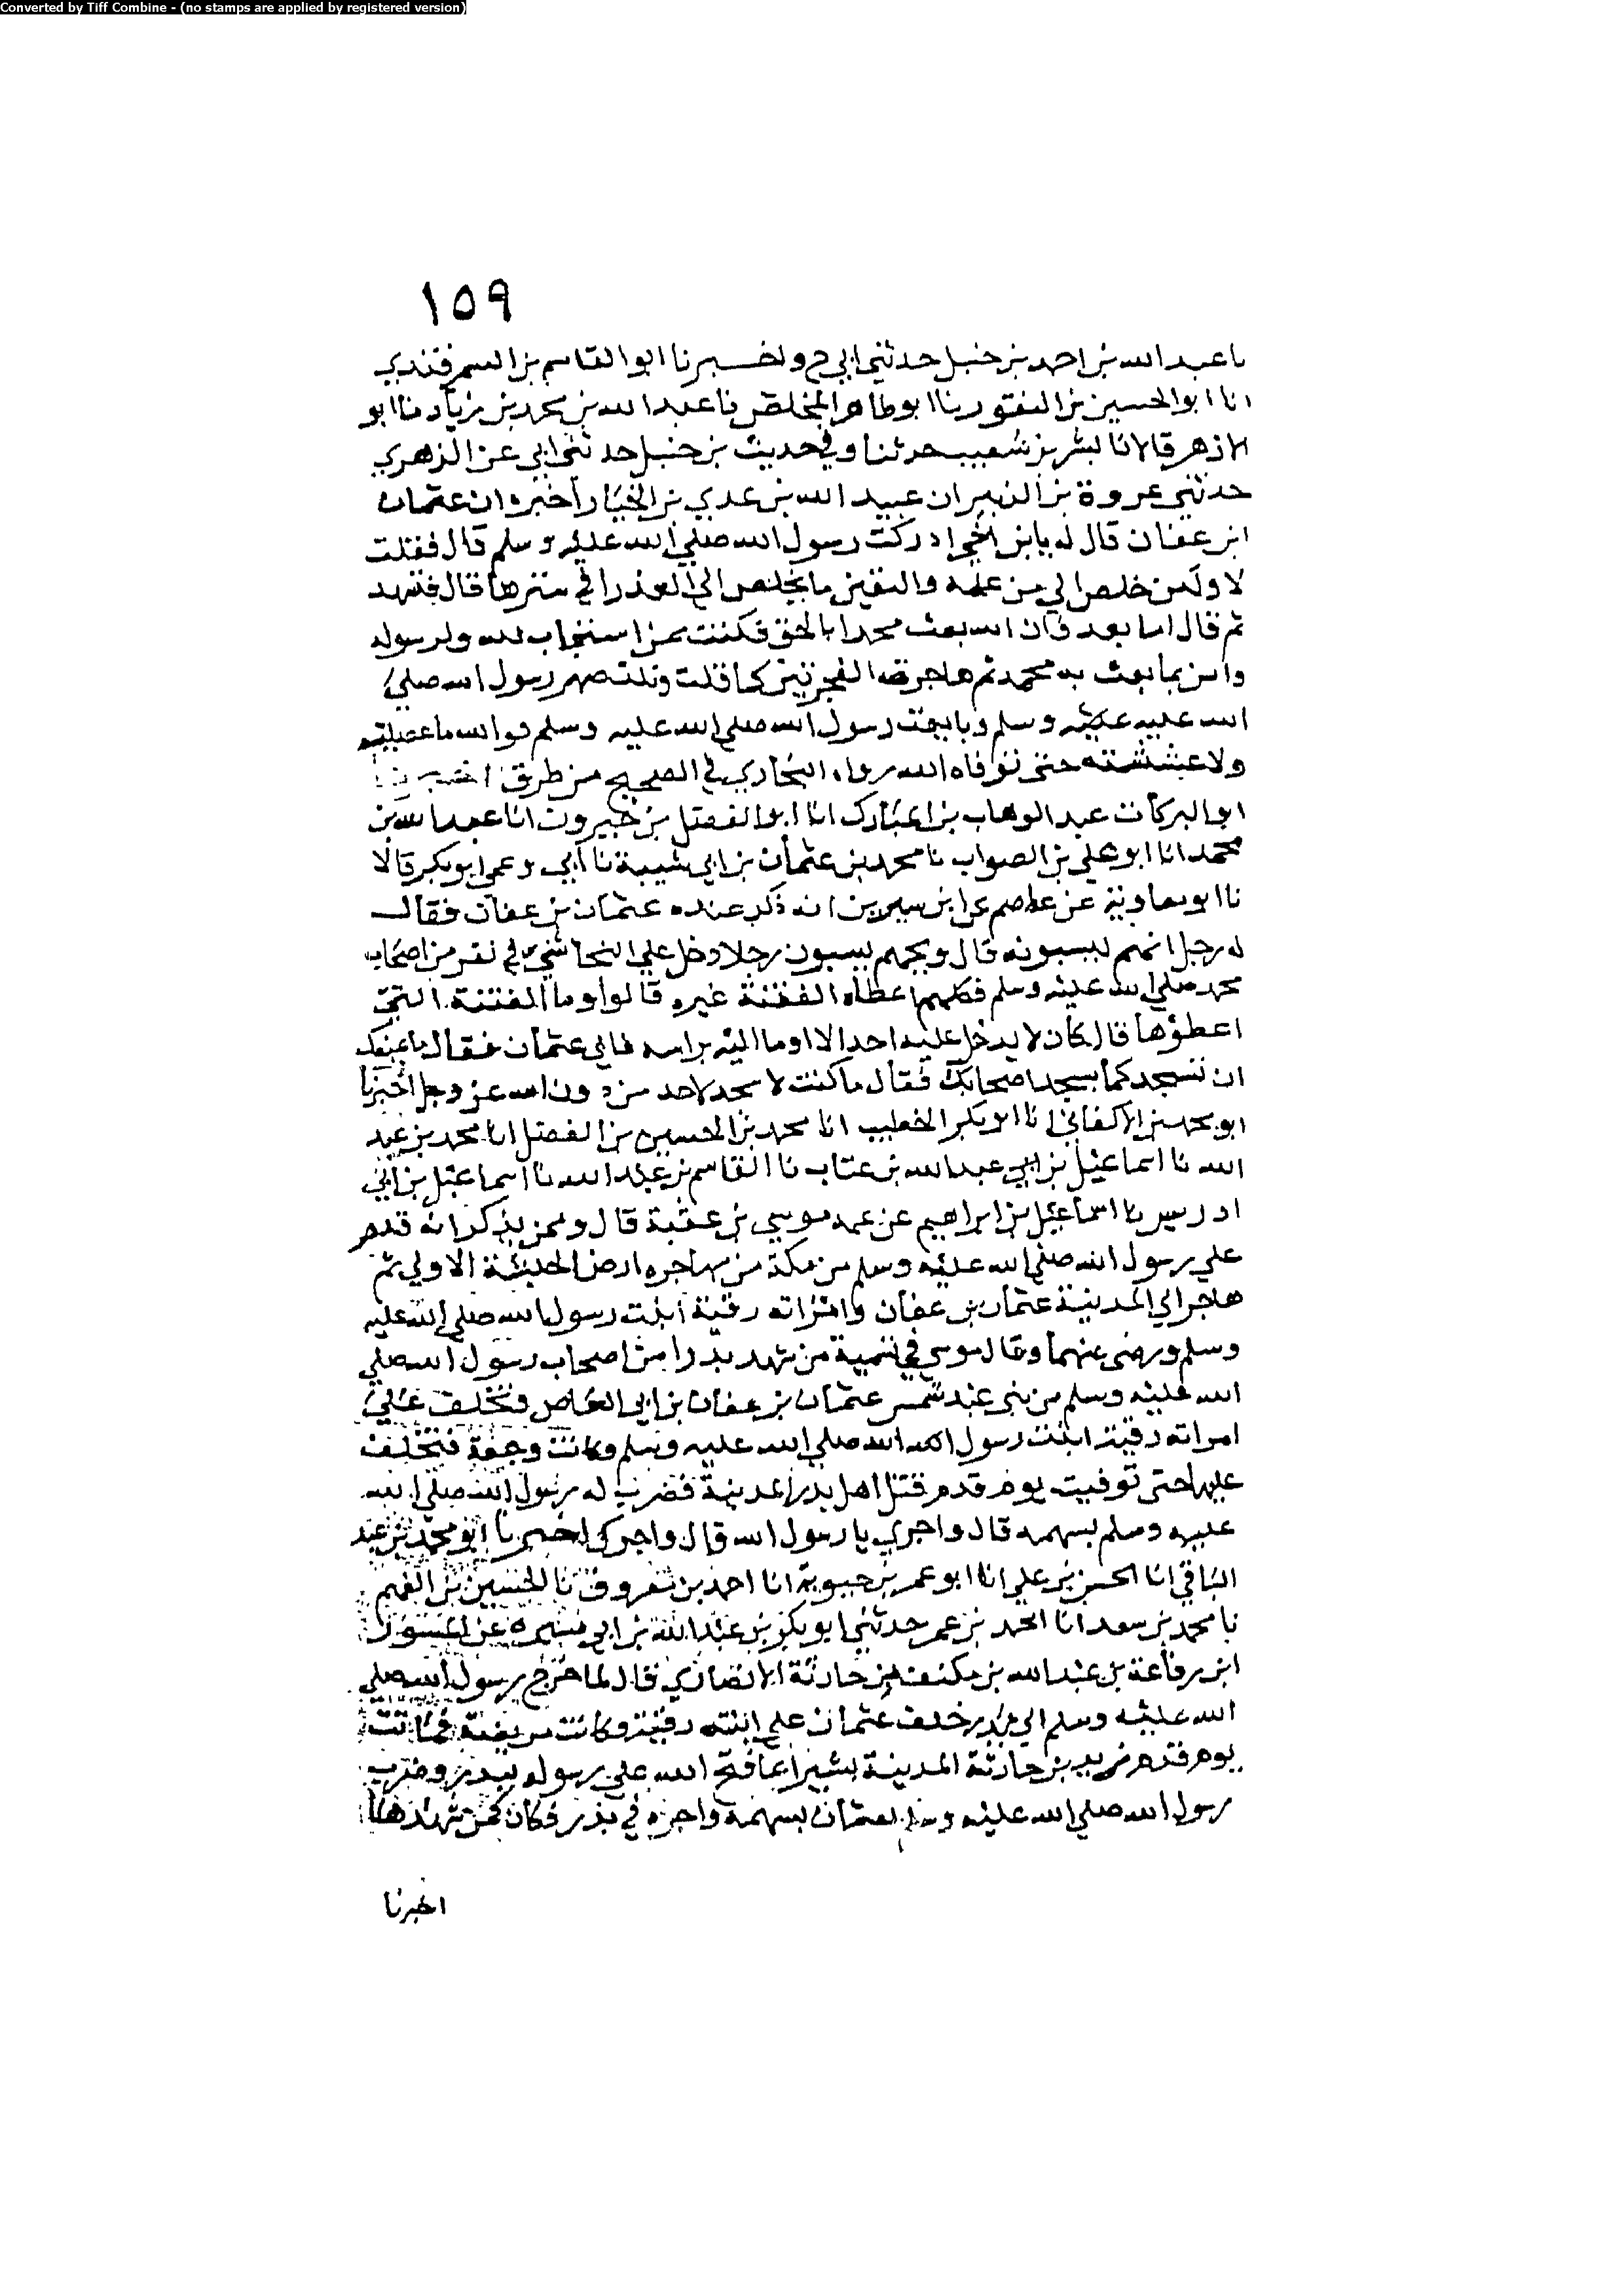 Converted by Tiff Combine - (no stamps are applied by registered version)
١٥٩
نا عبد الله بن احمد بن حنبل حدثني ابي ح واخبرنا ابو القاسم بن السمرقندي
انا ابو الحسين بن النقور نا ابو طاهر المخلص نا عبد الله بن محمد بن زياد نا ابو
الازهر قالا نا بشر بن شعيب حدثنا وفي حديث بن حنبل حدثني ابي عن الزهري
حدثني عروة بن الزبير ان عبيد الله بن عدي بن الخيار أخبره ان عثمان
ابن عفان قال له يا بن اخي ادركت رسول الله صلى الله عليه وسلم قال فقلت
لا ولكن خلص الي من علمه واليقين ما يخلص الى العذرا في سترها قال فتشهد
ثم قال اما بعد فان الله بعث محمدا بالحق فكنت ممن استجاب لله ولرسوله
وامن بما بعث به محمد ثم هاجرت الهجرتين كما قلت ونلت صهر رسول الله صلى
الله عليه وسلم وبايعت رسول الله صلى الله عليه وسلم فوالله ما عصيته
ولا غششته حتى توفاه الله رواه البخاري في الصحيح من طريق اخبرنا
ابو البركات عبد الوهاب بن المبارك انا ابو الفضل بن خيرون انا عبد الله بن
محمد انا ابو علي بن الصواب نا محمد بن عثمان بن ابي شيبة نا أبي وعمي ابو بكر قالا
نا ابو معاوية عن عاصم عن ابن سيرين انه ذكر عنده عثمان بن عفان فقال
له رجل انهم ليسبونه قال ويحهم يسبون رجلا دخل علي النجاشي في نفر من اصحاب
محمد صلى الله عليه وسلم فكلهم اعطاه الفتنة غيره قالوا وما الفتنة التي
اعطوها قال كان لا يدخل عليه احد الا اوما اليه براسه فابى عثمان فقال ما منعك
ان تسجد كما يسجد اصحابك فقال ما كنت لا سجد لاحد من دون الله عز وجل اخبرنا
ابو محمد بن الاكفاني نا ابو بكر الخطيب انا محمد بن الحسين بن الفضل انا محمد بن عبد
الله نا اسماعيل بن ابي عبد الله بن عتاب نا القاسم بن عبد الله نا اسماعيل بن ابي
اويس نا اسماعيل بن ابراهيم عن عمه موسي بن عقبة قال وممن يذكر انه قدم
علي رسول الله صلى الله عليه وسلم من مكة من مهاجره ارض الحبشة الاولي ثم
هاجر الى المدينة عثمان بن عفان وامراته رقية ابنت رسول الله صلى الله عليه
وسلم ورضي عنهما وقال موسي في تسمية من شهد بدرا من اصحاب رسول الله صلي
الله عليه وسلم من بني عبد شمس عثمان بن عفان بن ابي العاص فتخلف علي
امراته رقية ابنت رسول الله صلى الله عليه وسلم وكانت وجعة فتخلف
عليها حتى توفيت يوم قدم قتل اهل بدر المدينة فضرب له رسول الله صلى الله
عليه وسلم بسهمه قال واجري يا رسول الله قال واجرك اخبرنا ابو محمد بن عبد
الباقي انا الحسن بن علي انا ابو عمر بن حيوية انا احمد بن معروف نا الحسين بن الفهم
نا محمد بن سعد انا محمد بن عمر حدثني ابو بكر بن عبد الله بن ابي سبرة عن المسور
ابن رفاعة بن عبد الله بن مكنف من حارثة الانصاري قال لما خرج رسول الله صلي
الله عليه وسلم الي بدر خلف عثمان علي ابنته رقية وكانت مريضة فماتت
يوم قدم زيد بن حارثة المدينة بشيرا بما فتح الله علي رسوله ببدر وضرب
رسول الله صلى الله عليه وسلم لعثمان بسهمه واجره في بدر فكان كمن شهدها
اخبرنا